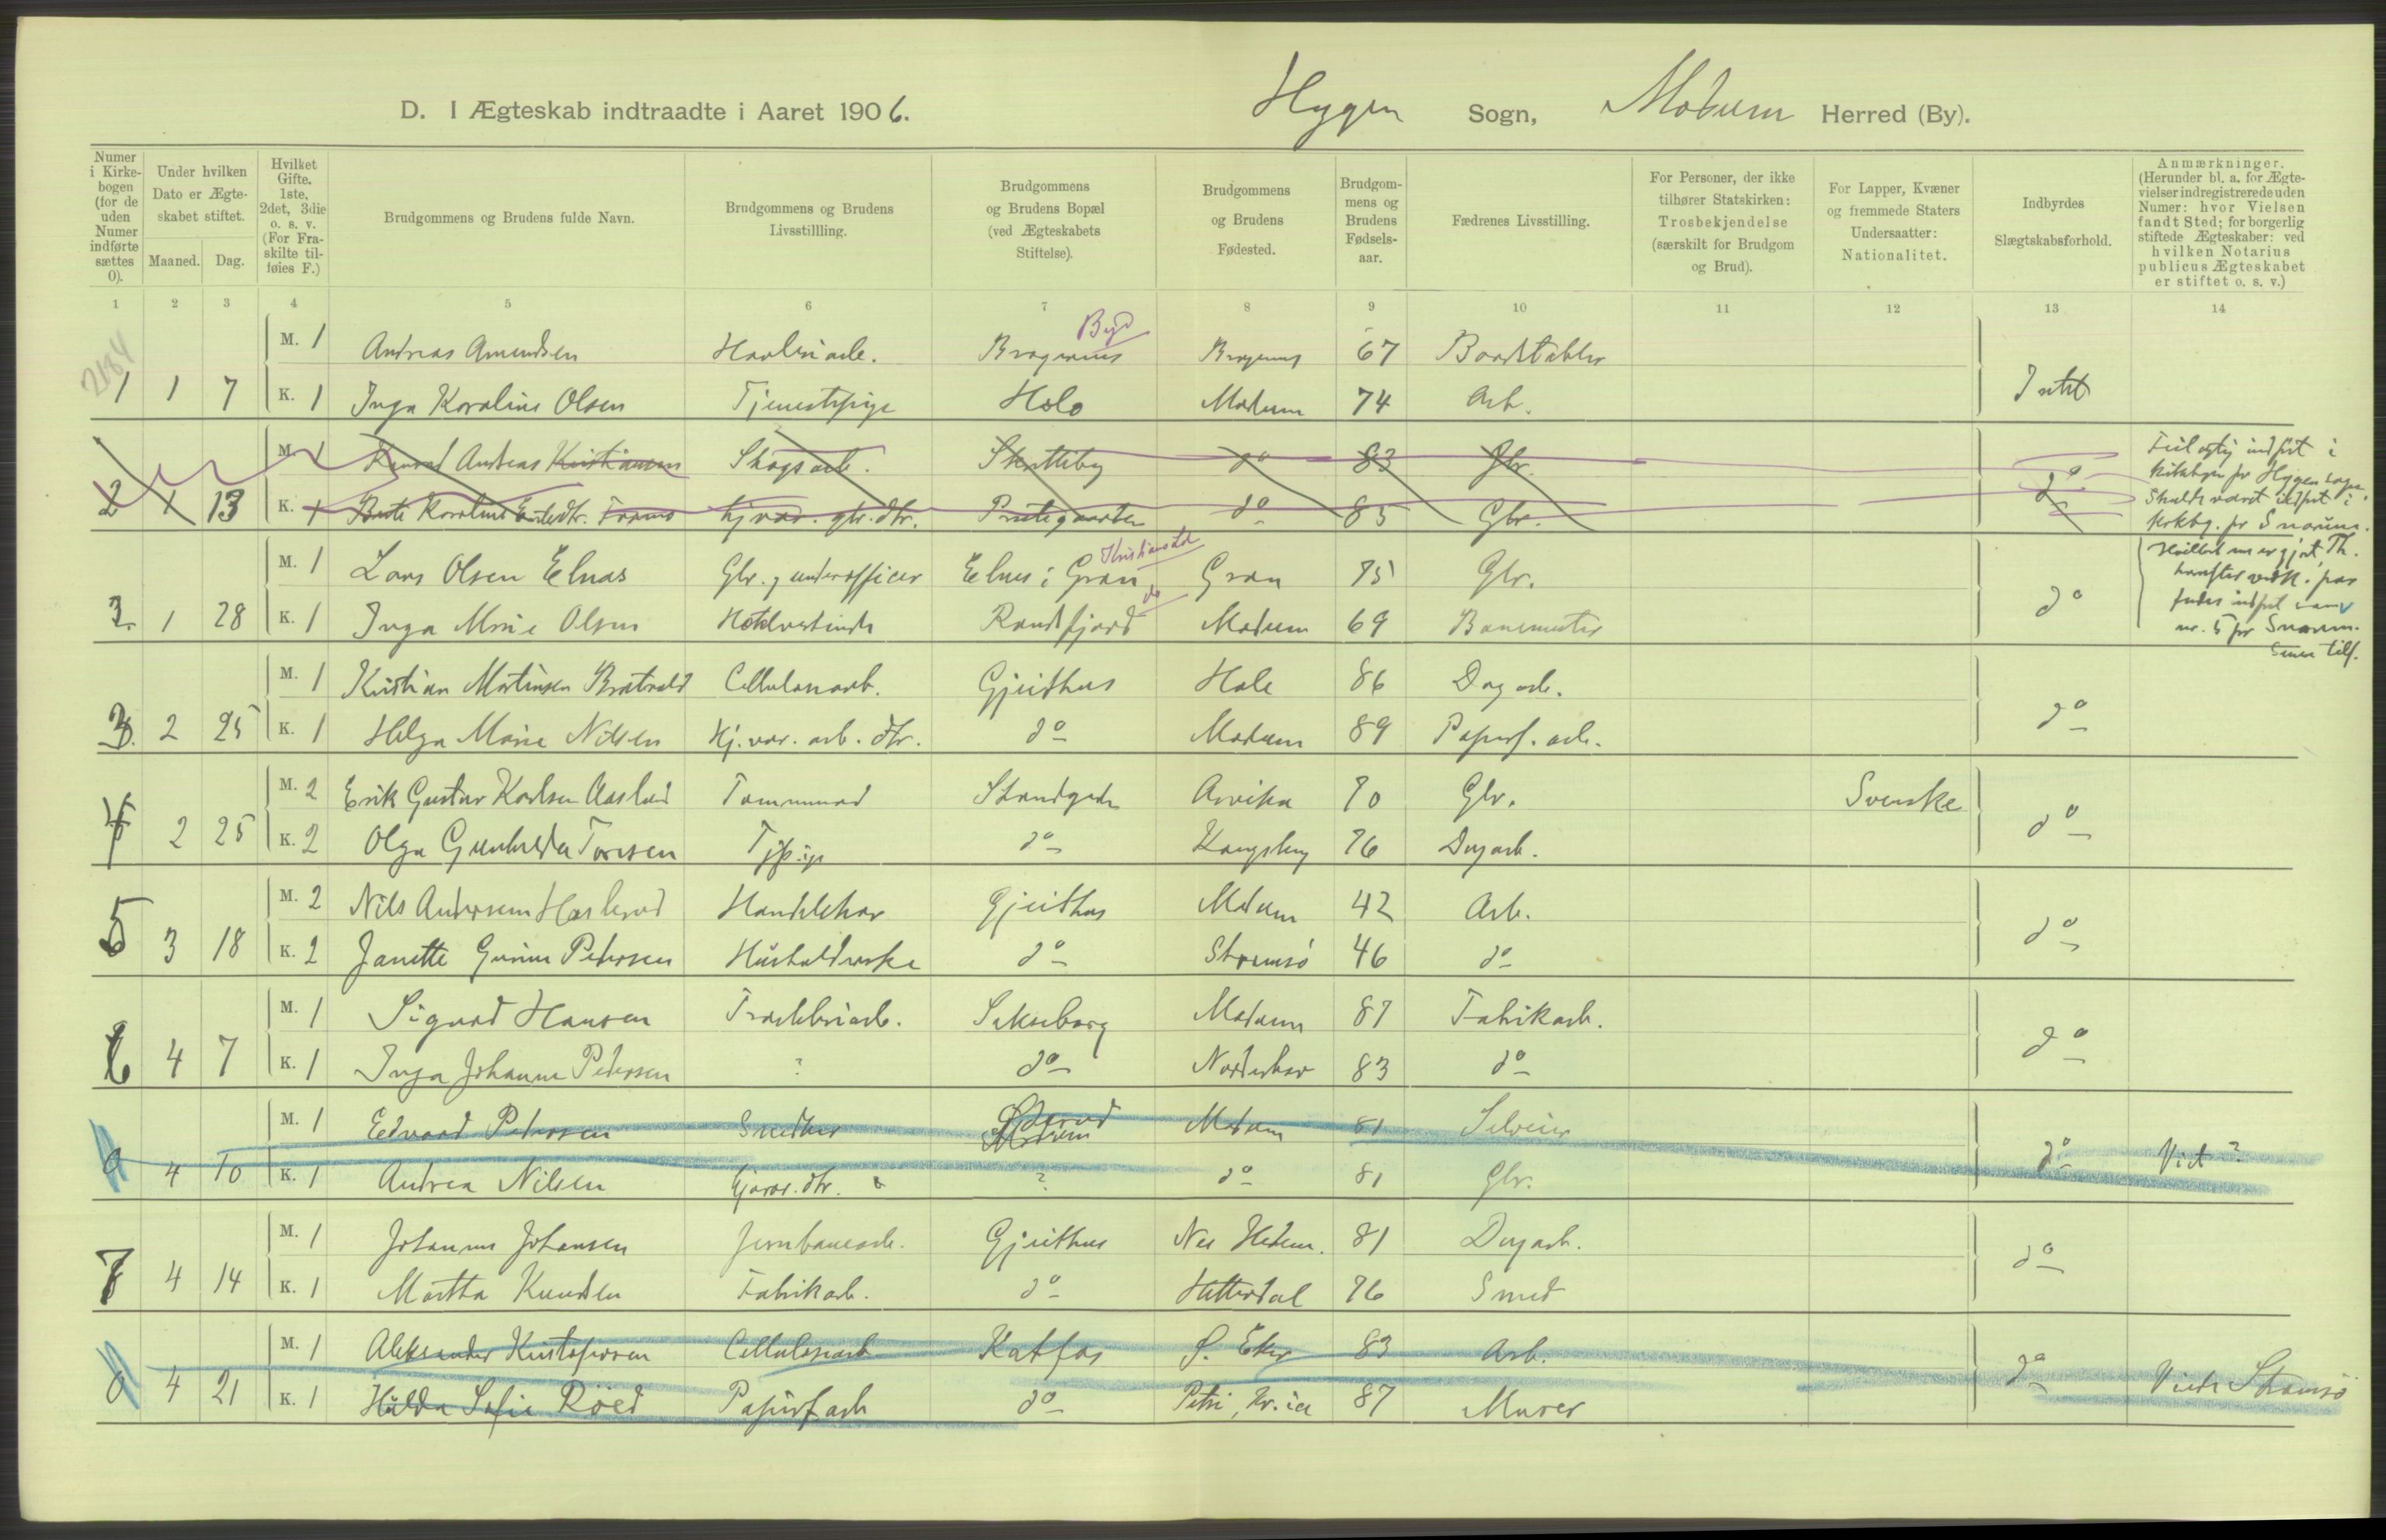 D. I Ægteskab indtraadte i Aaret 1906. Hyggen Sogn, Modum Herred (By).
Numer i Kirkebogen (for de uden Numer indførte sættes 0).
Under hvilken Dato er Ægteskabet stiftet.
Maaned. Dag.
Hvilket Gifte. 1ste, 2det, 3die o. s. v. (For Fraskilte tilføies F.)
Brudgommens og Brudens fulde Navn.
Brudgommens og Brudens Livsstillling.
Brudgommens og Brudens Bopæl (ved Ægteskabets Stiftelse).
Brudgommens og Brudens Fødested.
Brudgommens og Brudens Fødselsaar.
Fædrenes Livsstilling.
For Personer, der ikke tilhører Statskirken: Trosbekjendelse (særskilt for Brudgom og Brud).
For Lapper, Kvæner og fremmede Staters Undersaatter: Nationalitet.
Indbyrdes Slægtskabsforhold.
Anmærkninger. (Herunder bl. a. for Ægtevielser indregistrerede uden Numer: hvor Vielsen fandt Sted; for borgerlig stiftede Ægteskaber: ved hvilken Notarius publicus Ægteskabet er stiftet o. s. v.)
1 2 3 4 5 6 7 8 9 10 11 12 13 14
2184
M. 1 Andreas Amundsen Bragernes Byd Bragernes 67
1 1 7 K. 1 Inga Karoline Olsen Tjenestepige Holo Modum 74 Arb. Intet
M. 1 Konrad Andreas Kristiansen Skogsarb. Skuttiby do 83 Gbr.
2 1 13 K. 1 Karoline Hj. var. gbr. dtr. Prestegaarden do 85 Gbr. do
Feilagtig indført i
kirkebogen for Hyggen sogn.
Skulde været indført i
kirkebg. for Snarum.
M. 1 Lars Olsen Elnæs Gbr. og underofficer Elnes i Gran Kristiansld Gran 75 Gbr.
3. 1 28 K. 1 Inga Marie Olsen Hotelvertinde Randsfjord do Modum 69 Banemester do
Hvilket nu er gjort, Th.
nr. 5 for Snarum.
M. 1 Kristian Martinsen Bratvold Cellulosearb. Gjeithus Hole 86 Dagarb.
3. 2 25 K. 1 Helga Marie Nilsen Hj. var. arb. dtr. do Modum 89 Papirf. arb. do
M. 2 Erik Gustav Karlsen Aaslund Tømmermand Strandgade Arvika 70 Gbr. Svenske
4 2 25 K. 2 Olga Gunhilda Toresen Tjpige do Kongsberg 76 Dagarb. do
M. 2 Nils Andersen Haslerud Handelskar Gjeithus Modum 42 Arb.
5 3 18 K. 2 Janette Gurine Petersen Husholderske do Strømsø 46 do do
M. 1 Sigurd Hansen Træsliberiarb. Sakseborg Modum 87 Fabrikarb.
6 4 7 K. 1 Inga Johanne Petersen ? do Norderhov 83 do do
M. 1 Edvard Petersen Snedker Modum Modum 81
0 4 10 K. 1 Andrea Nilsen Hjvær. dtr. ? do 81 Gbr. do Viet ?
M. 1 Johannes Johansen Jernbanearb. Gjeithus Nes Hedem. 81 Dagarb.
7 4 14 K. 1 Martha Knudsen Fabrikarb. do Hitterdal 76 Smed do
M. 1 Aleksander Kristofersen Cellulosearb Katfos Ø. Eker 83 Arb.
0 4 21 K. 1 Hulda Sofie Röed Papirfarb do Petri, Kr.ia 87 Murer do Viede Strømsø